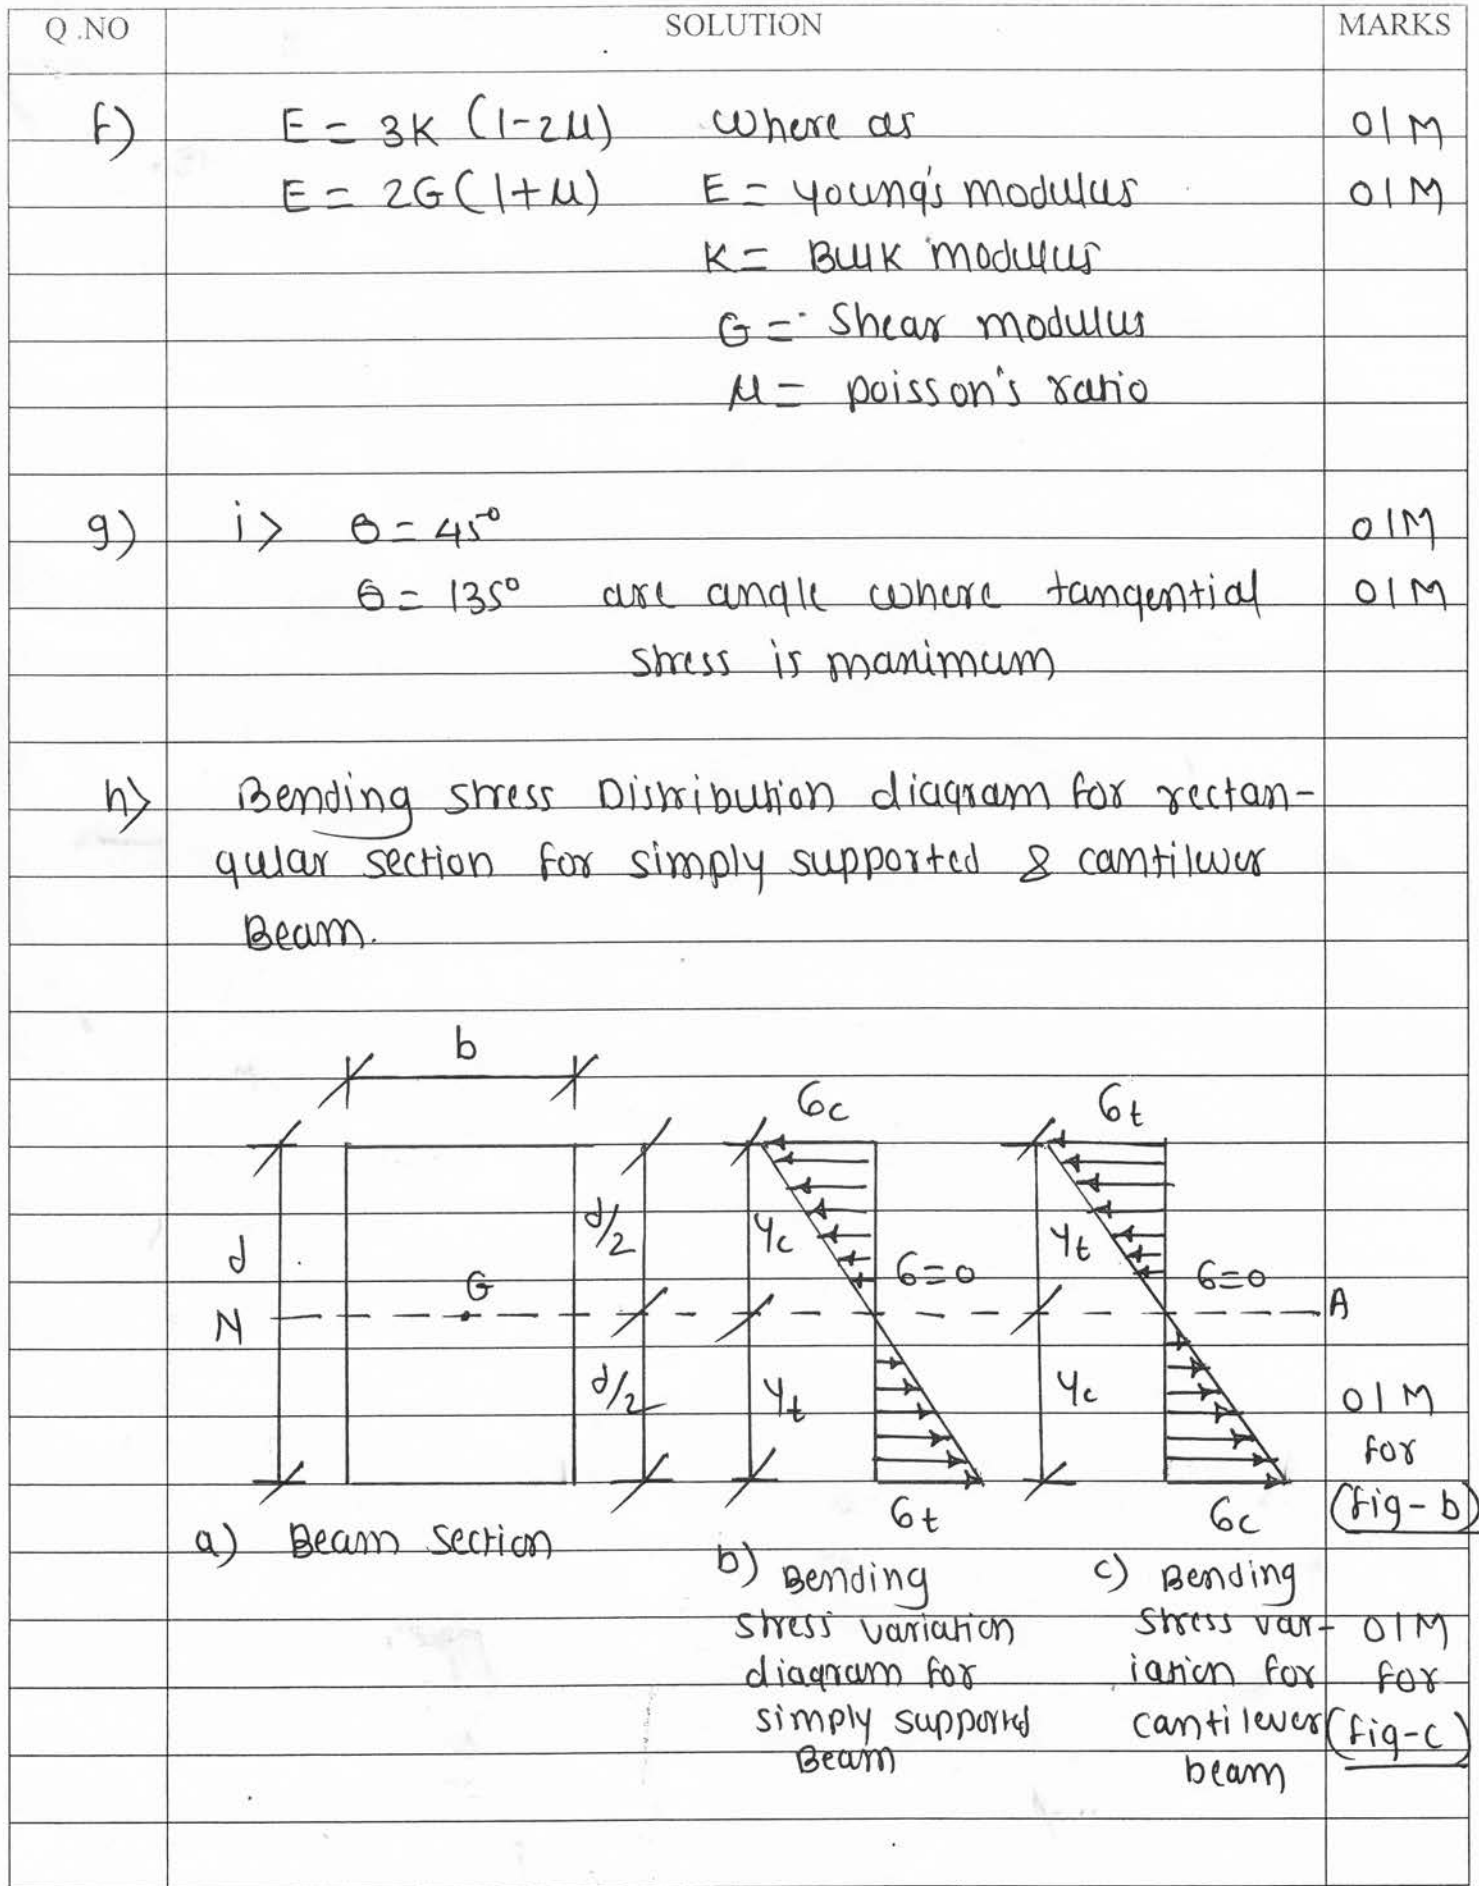 Q.NO SOLUTION MARKS
f) E = 3K (1-2μ) where as 01M
E = 2G(1+μ) E = young's modulus 01M
K = Bulk modulus
G = Shear modulus
μ = poisson's ratio
g) i> θ = 45° 01M
θ = 135° are angle where tangential 01M
stress is maximum
h) Bending stress Distribution diagram for rectan-
gular section for simply supported & cantilever
Beam.
b
σc σt
d/2 yc yt
d
G σ=0 σ=0
N A
d/2 yt yc 01M
for
σt σc (fig-b)
a) Beam section
b) Bending
stress variation
diagram for
simply supported
Beam
c) Bending
stress var-
iation for
cantilever
beam
01M
for
(fig-c)